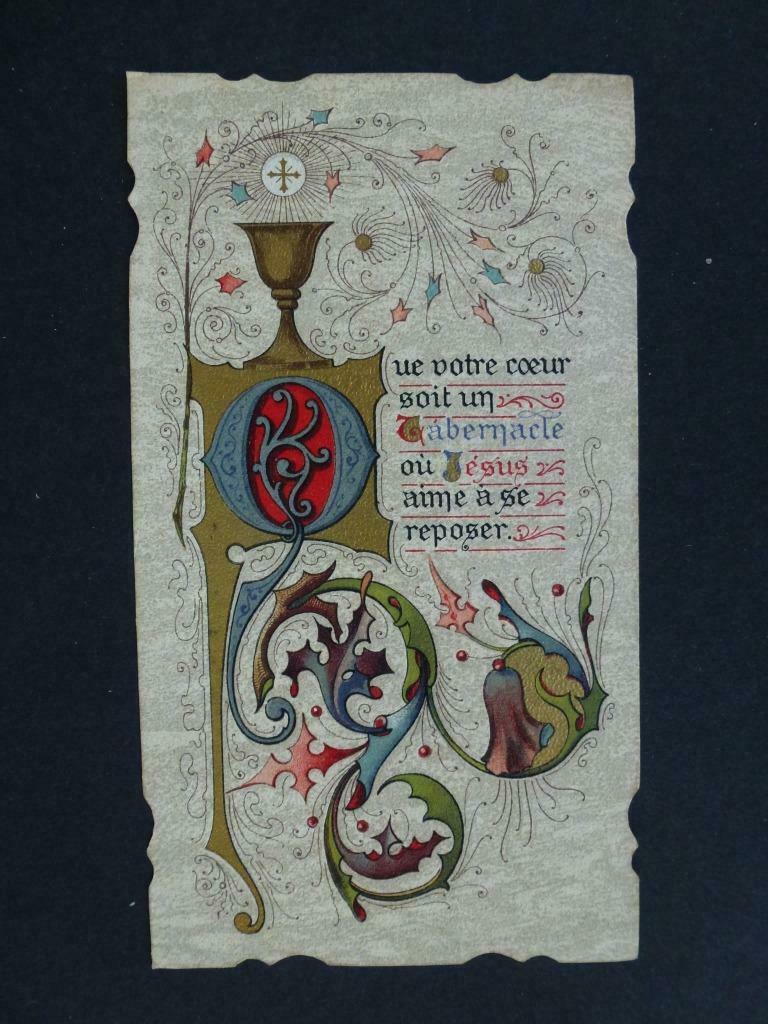 Que votre cœur
soit un
Tabernacle
où Jésus
aime à se
reposer.